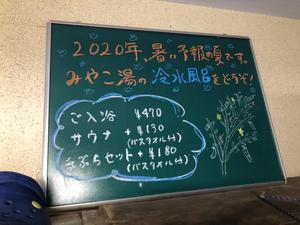 2020年、暑い予報の夏です。
みやこ湯の冷水風呂をどうぞ!
ご入浴 ¥470
サウナ +¥130
(バスタオル付)
手ぶらセット+¥180
(バスタオル付)